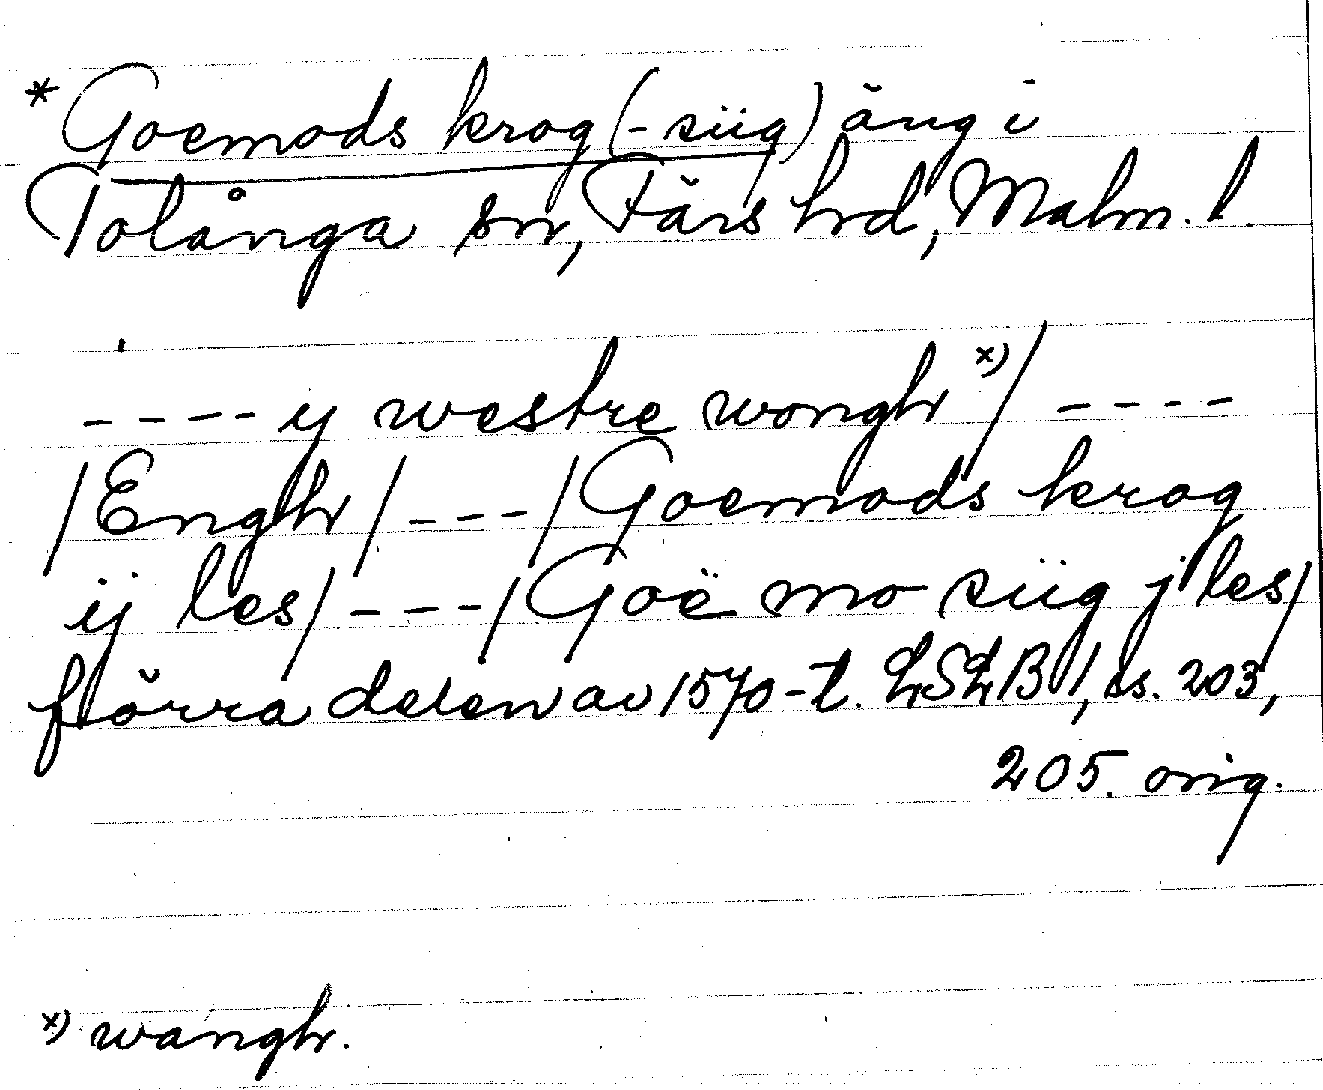 * Goemods krog (-siig) äng i
Tolånga sn, Färs hrd, Malm. l.
---- y westre wongh x) / ----
/ Engh / --- / Goemods krog
ij les / --- / Goë mo siig j les /
förra delen av 1570-t. LSLB 1, ss. 203,
205. orig.
x) wangh.